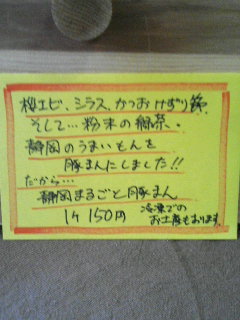 桜エビ、シラス、かつおけずり節、
そして…粉末の緑茶、
静岡のうまいもんを
豚まんにしました!!
だから…
静岡まるごと豚まん
1ケ 150円
冷凍での
お土産もあります。